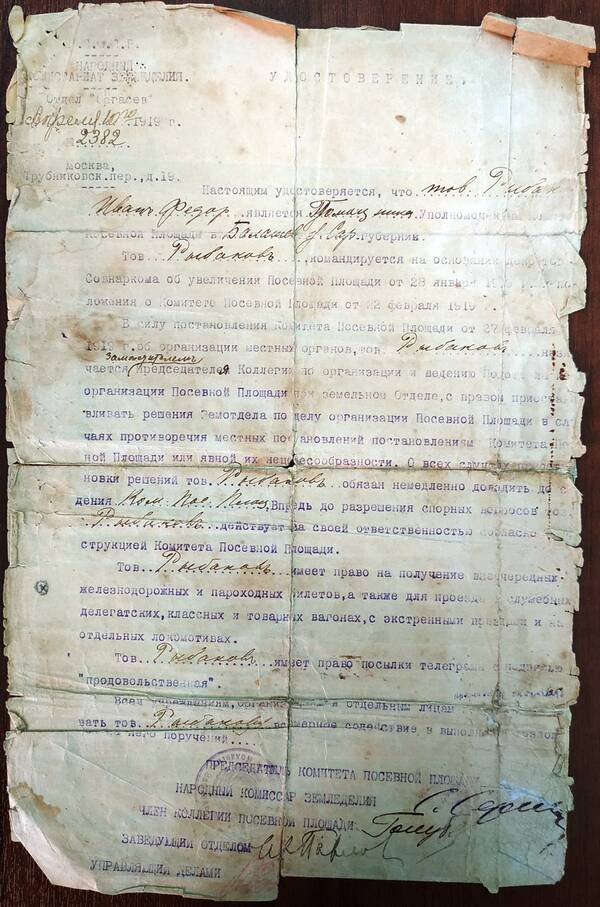 Р.С.Ф.С.Р.
НАРОДНЫЙ
КОМИССАРИАТ ЗЕМЛЕДЕЛИЯ.
УДОСТОВЕРЕНИЕ.
Отдел "Оргасев"
апреля 10го 1919 г.
2382
Москва,
Трубниковск.пер.,д.19.
Настоящим удостоверяется, что тов. Рыбак
Иван Федор является Уполномоч
Посевной Площади в Балашов у. Сар. губернии.
Тов. Рыбаковъ командируется на основании декрета
Совнаркома об увеличении Посевной Площади от 28 января 19 г.
ложения о Комитете Посевной Площади от 22 февраля 1919
В силу постановления Комитета Посевной Площади от 27 февраля
1919 г.об организации местных органов,тов. Рыбаковъ назна
заместителем
чается Председателя Коллегии по организации и ведению
организации Посевной Площади при земельном Отделе,с правом приоста
вливать решения Земотдела по делу организации Посевной Площади в слу
чаях противоречия местных постановлений постановлениям Комитета По
ной Площади или явной их нецелесообразности. О всех случаях
новки решений тов. Рыбаковъ обязан немедленно доводить до с
дения Ком. Пос. Площ. Впредь до разрешения спорных вопросов тов.
Рыбаковъ действует за своей ответственностью согласно
струкцией Комитета Посевной Площади.
Тов. Рыбаковъ имеет право на получение внеочередных
железнодорожных и пароходных билетов,а также для проезда в служебных
делегатских,классных и товарных вагонах,с экстренными поездами и на
отдельных локомотивах.
Тов. Рыбаковъ имеет право посылки телеграмм с надписью
"продовольственная".
Всем учреждениям,организациям и отдельным лицам
вать тов. Рыбакову всемерное содействие в выполнении
на него поручений....
ПРЕДСЕДАТЕЛЬ КОМИТЕТА ПОСЕВНОЙ ПЛОЩАДИ
НАРОДНЫЙ КОМИССАР ЗЕМЛЕДЕЛИЯ
ЧЛЕН КОЛЛЕГИИ ПОСЕВНОЙ ПЛОЩАДИ
ЗАВЕДУЮЩИЙ ОТДЕЛОМ
УПРАВЛЯЮЩИЙ ДЕЛАМИ